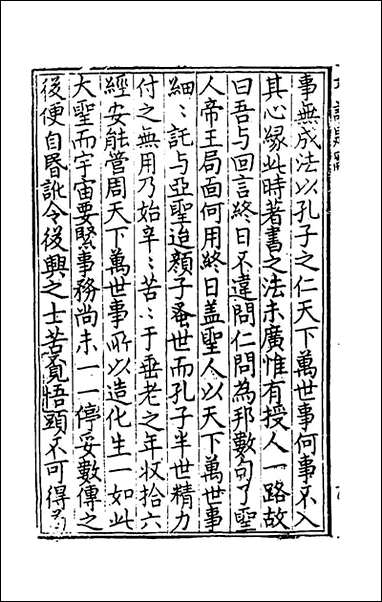 事無成法以孔子之仁天下萬世事何事不入
其心縁此時著書之法未廣惟有授人一路故
曰吾与回言終日不違問仁問為邦數句了聖
人帝王局面何用終日盖聖人以天下萬世事
細〻託与亞聖迨顔子蚤世而孔子半世精力
付之無用乃始辛〻苦〻于垂老之年収拾六
經安能管周天下萬世事所以造化生一如此
大聖而宇宙要緊事務尚未一一停妥數傳之
後便自昬訛令後興之士苦覔悟頭不可得